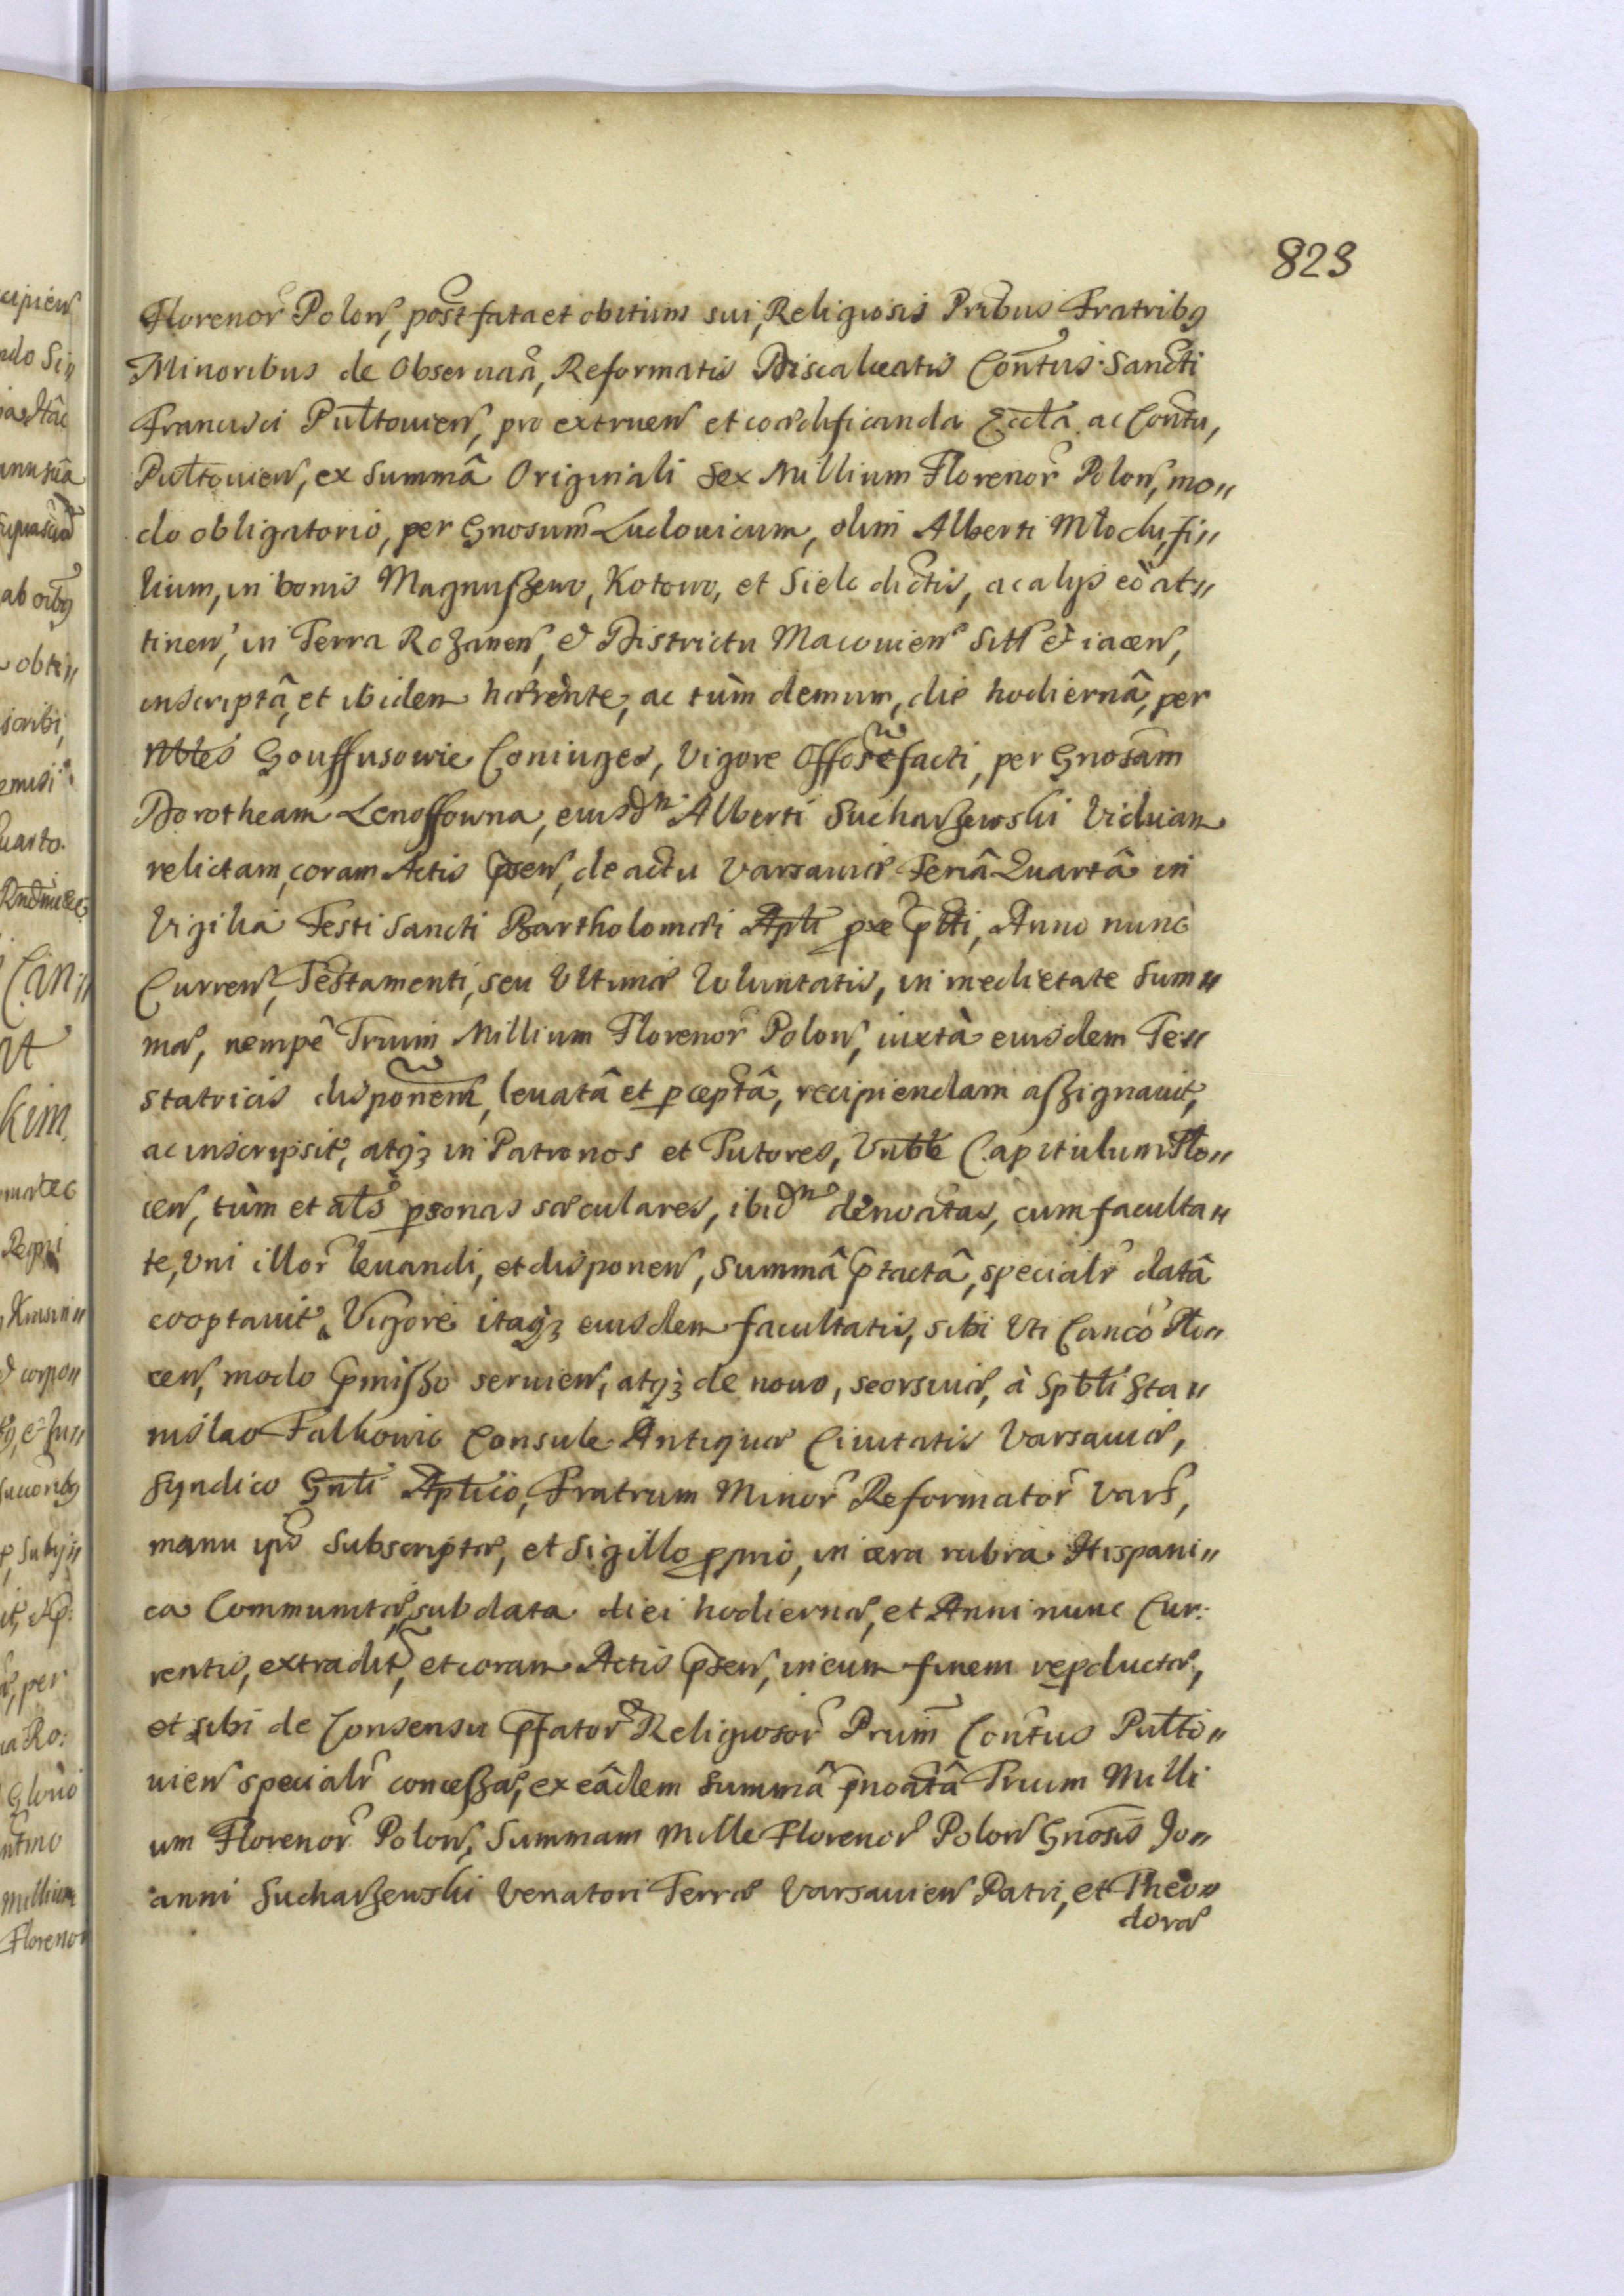 823
Florenor Polon, post fata et obitum sui, Religiosis Pribus Fratribq
Minoribus de Obseruaa, Reformatis Discalceatis Contus Sancti
Francisci Pultouien, pro extruen et coædificanda Eccla ac Contu,
Pultouien, ex Summâ Originali Sex Millium Florenor Polon, mo„
do obligatorio, per Gnosum Ludouicum, olim Alberti Młocki, fi„
lium, in bonis Magnuszewo, Kotowo, et Sielc dictis, ac alijs eò at„
tinen, in Terra Rozanen, & Districtu Macouien Sitt & iacen,
inscriptâ, et ibidem hærente, ac tùm demum, die hodiernâ, per
Nbles Gouffusowie Coniuges, Vigore Offoreefacti, per Gnosam
Dorotheam Lenoffowna, eiusdm Alberti Sucharzewski Viduam
relictam, coram Actis psen, de actu Varsauiæ Feriâ Quartâ in
Vigilia Festi Sancti Bartholomæi Apli pxe pttI, Anno nunc
Curren, Testamenti, seu Vltimæ Voluntatis, in medietate Sum„
mæ, nempè Trium Millium Florenor Polon, iuxtà eiusdem Te„
statricis disponem, leuatâ et pceptâ, recipiendam aszignauit,
ac inscripsit, atq3 in Patronos et Tutores, Vnble Capitulum Plo„
cen, tùm et als psonas sæculares, ibidm denoatas, cum faculta„
te, Vni illor leuandi, et disponen, Summâ ptactâ, specialr datâ
cooptauit. Vigore itaq3 eiusdem facultatis, sibi Vti Canco Plo„
cen, modo pmiszo seruien, atq3 de nouo, seorsiuæ, à Spbli Sta„
nislao Falkowic Consule Antiquæ Ciuitatis Varsauiæ,
Syndico Gnli Aplico, Fratrum Minor Reformator Vars,
manu ips Subscriptæ, et Sigillo pprio, in cera rubra Hispani„
ca Communitæ, sub data diei hodiernæ, et Anni nunc Cur„
rentis, extradit, et coram Actis psen, in eum finem repductæ,
et sibi de Consensu pfator Religiosor Prum Contus Pulto„
uien specialr conceszæ, ex eâdem Summâ pnoatâ Trium Milli
um Florenor Polon, Summam Mille Florenor Polon Gnosis Jo„
anni Sucharzewski Venatori Terræ Varsauien Patri, et Theo„
doræ